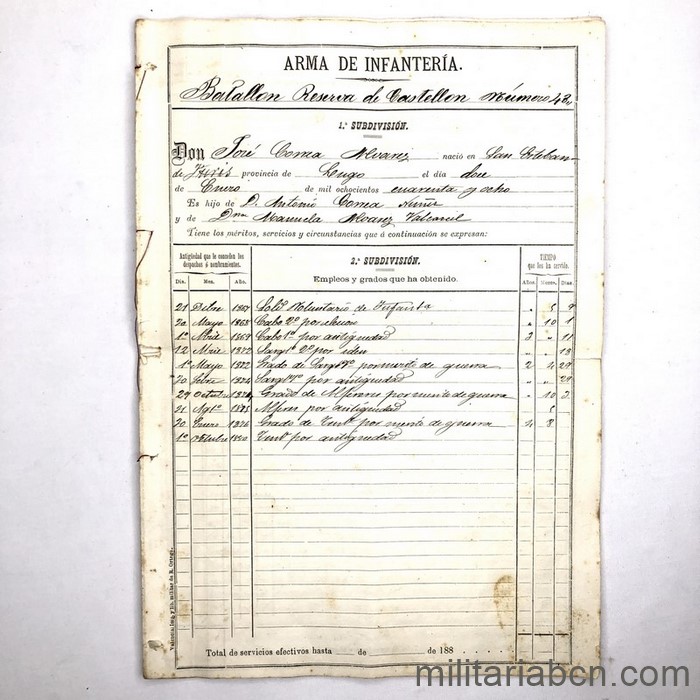 ARMA DE INFANTERÍA.
Batallon Reserva de Castellon Número 43
1.ª SUBDIVISIÓN.
Don José Coma Alvarez nació en San Esteban
de provincia de Lugo el día dos
de Enero de mil ochocientos cuarenta y ocho
Es hijo de D. Antonio Coma Nuñez
y de Dña Manuela Alvarez Valcarcel
Tiene los méritos, servicios y circunstancias que á continuación se expresan:
Antigüedad que le conceden los despachos ó nombramientos.
2.ª SUBDIVISIÓN.
Empleos y grados que ha obtenido.
TIEMPO que los ha servido.
Día. Mes. Año. Años. Meses. Días.
21 Dibre 1867 Soldº Voluntario de Infantª " 5 9
20 Mayo 1868 Cabo 2º por elección " 10 11
1º Abril 1869 Cabo 1º por antigüedad 3 " 11
12 1872 Sargtº 2º por idem " " 18
1º Mayo 1872 Grado de Sargtº 1º por merito de guerra 2 4 29
30 1874 Sargtº 1º por antigüedad " " 29
29 Octubre 1874 Grado de Alferez por merito de guerra " 10 2
31 Agtº 1875 Alferez por antigüedad " 5
20 Enero 1876 Grado de Tente por merito de guerra 4 8
1º Octubre 1880 Tente por antigüedad
Total de servicios efectivos hasta de de 188
Valencia: Imp. y lib. militar de R. Ortega.
militariabcn.com